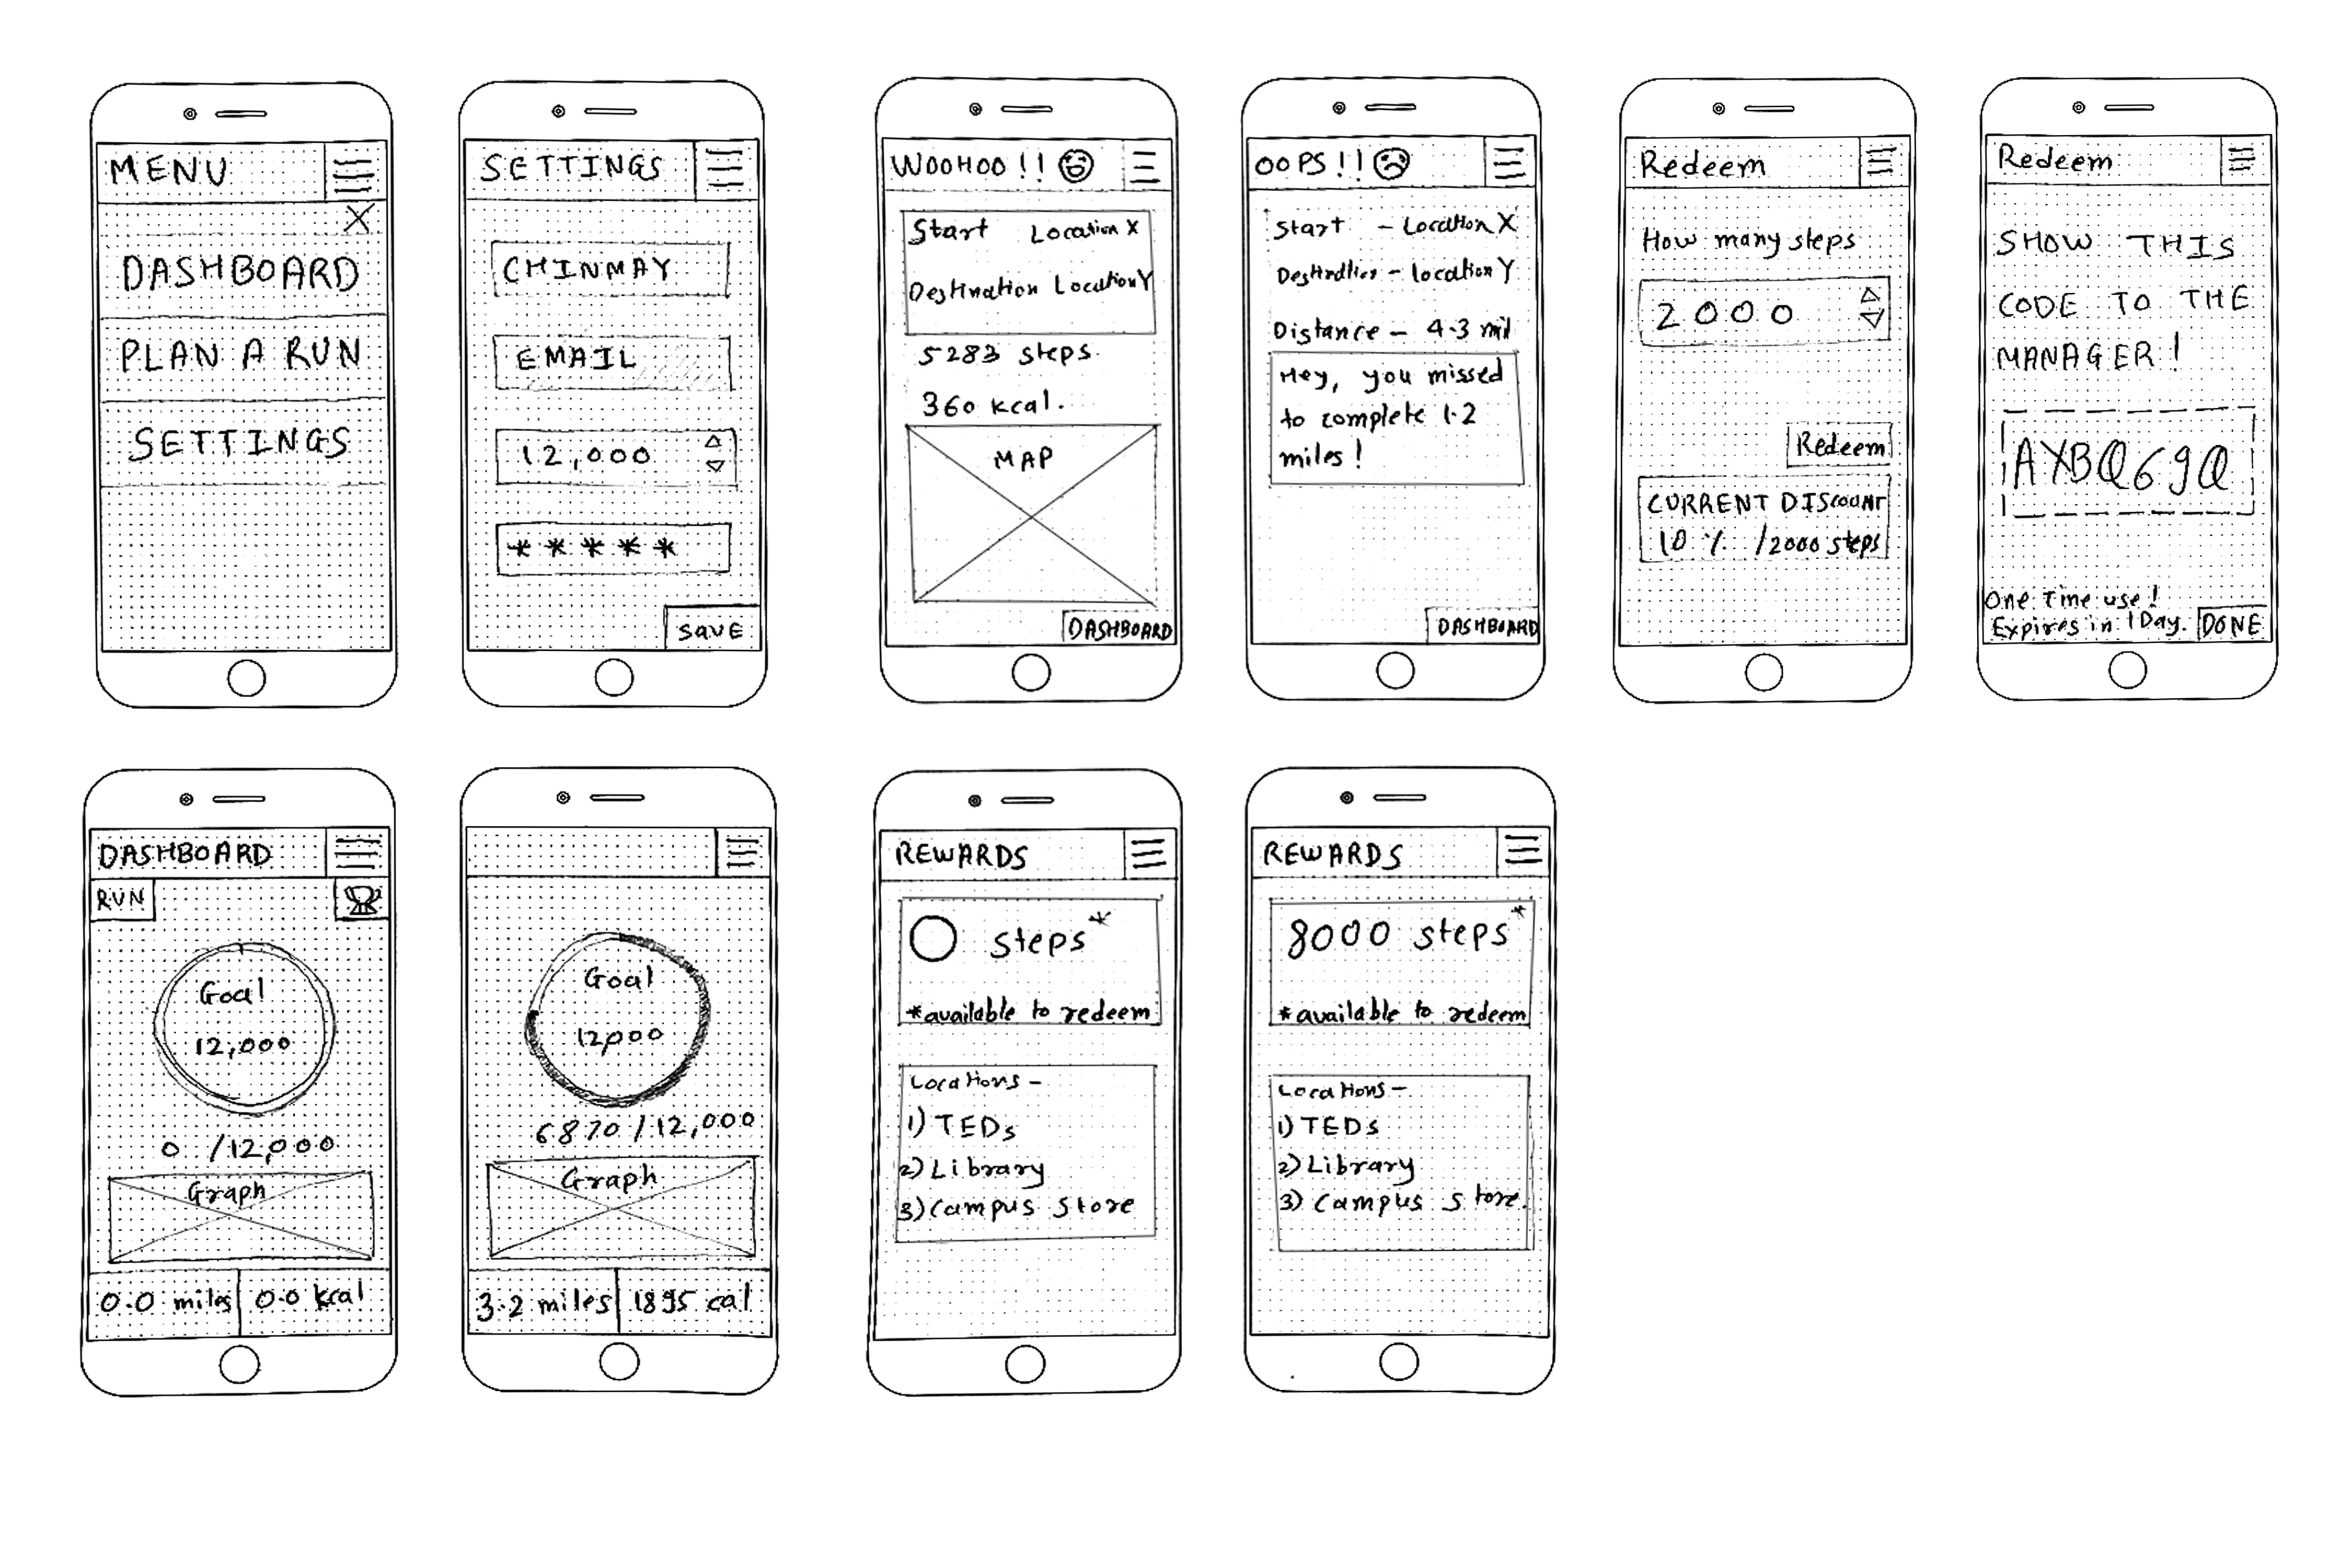 MENU
X
DASHBOARD
PLAN A RUN
SETTINGS
SETTINGS
CHINMAY
EMAIL
12,000
* * * * *
SAVE
WOOHOO!!
Start Location X
Destination Location Y
5283 steps.
360 kcal.
MAP
DASHBOARD
OOPS!!
Start - Location X
Destination - location Y
Distance - 4.3 mil
Hey, you missed
to complete 1.2
miles!
DASHBOARD
Redeem
How many steps
2000
Redeem
CURRENT DISCOUNT
10 % /2000 steps
Redeem
SHOW THIS
CODE TO THE
MANAGER!
AYBQ69Q
One Time use!
Expires in 1 Day.
DONE
DASHBOARD
RUN
Goal
12,000
0 /12,000
Graph
0.0 miles 0.0 kcal
Goal
12,000
6870 / 12,000
Graph
3.2 miles 1895 cal
REWARDS
0 steps*
*available to redeem
Locations -
1) TEDs
2) Library
3) Campus Store
REWARDS
8000 steps*
*available to redeem
Locations -
1) TEDs
2) Library
3) Campus Store.